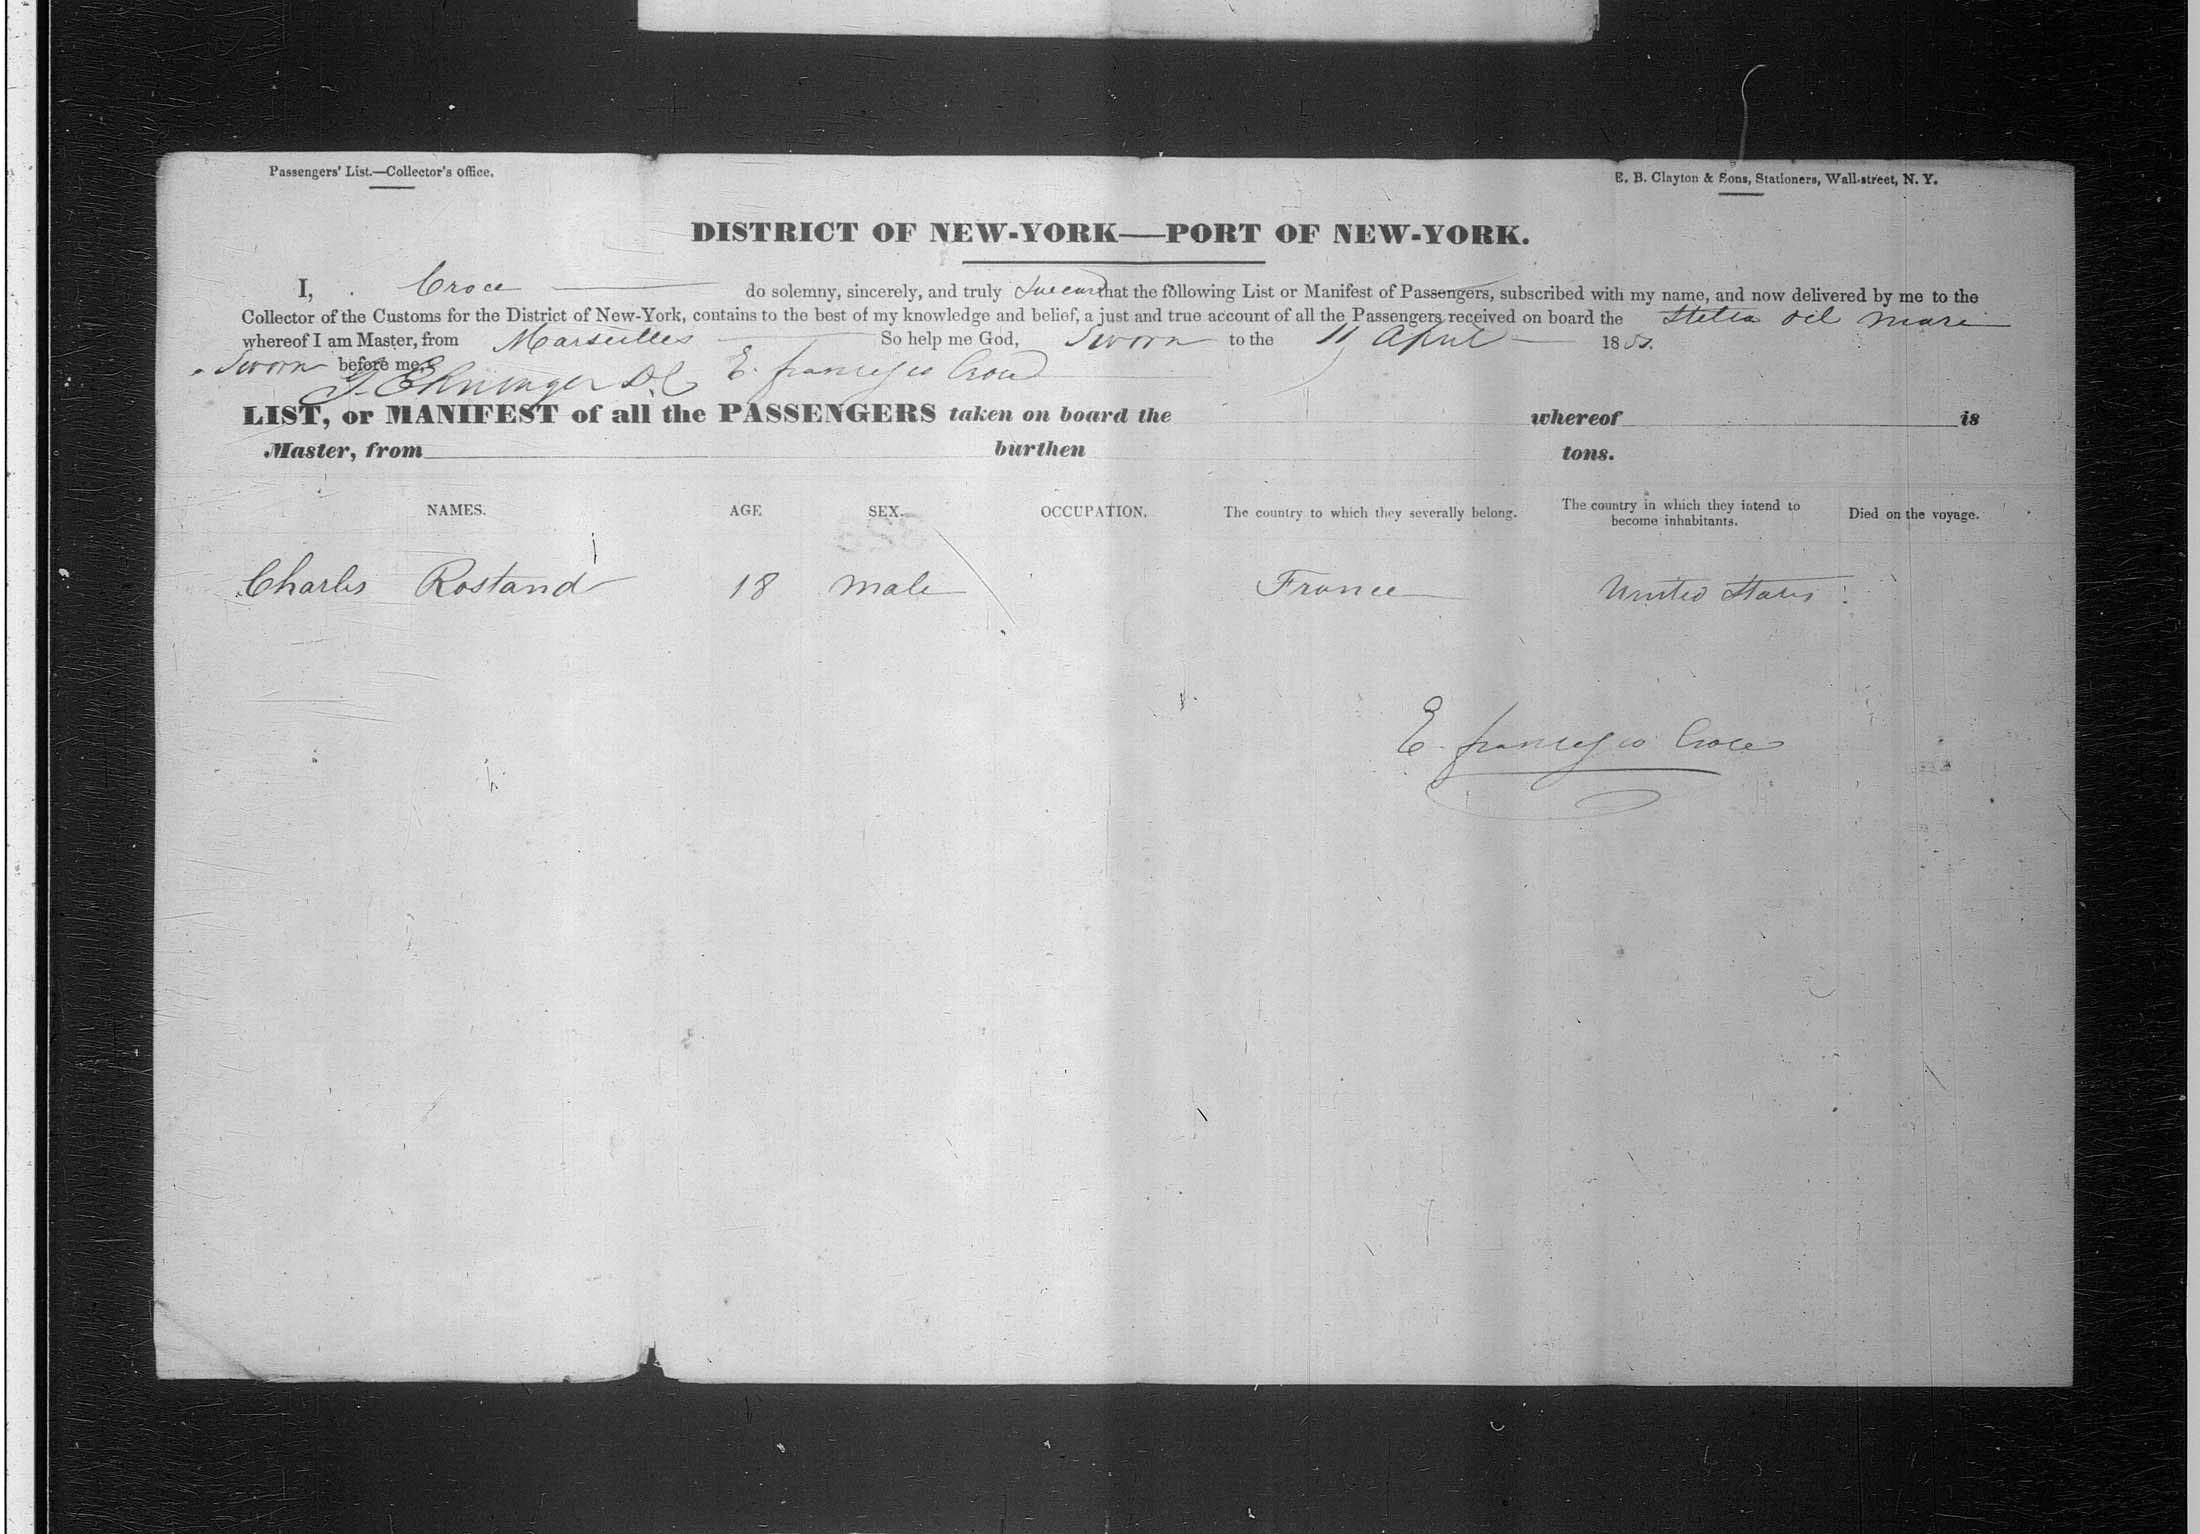 Passengers' List.—Collector's office.
E. B. Clayton & Sons, Stationers, Wall-street, N. Y.
DISTRICT OF NEW-YORK—PORT OF NEW-YORK.
I, Croce do solemny, sincerely, and truly Swear that the following List or Manifest of Passengers, subscribed with my name, and now delivered by me to the
Collector of the Customs for the District of New-York, contains to the best of my knowledge and belief, a just and true account of all the Passengers received on board the Stella del mare
whereof I am Master, from Marseilles So help me God, Sworn to the 11 April 185
Sworn before me, E. francesco Croce
LIST, or MANIFEST of all the PASSENGERS taken on board the whereof is
Master, from burthen tons.
NAMES. AGE SEX. OCCUPATION. The country to which they severally belong. The country in which they intend to become inhabitants. Died on the voyage.
Charles Rostand 18 male France United States
E. francesco Croce